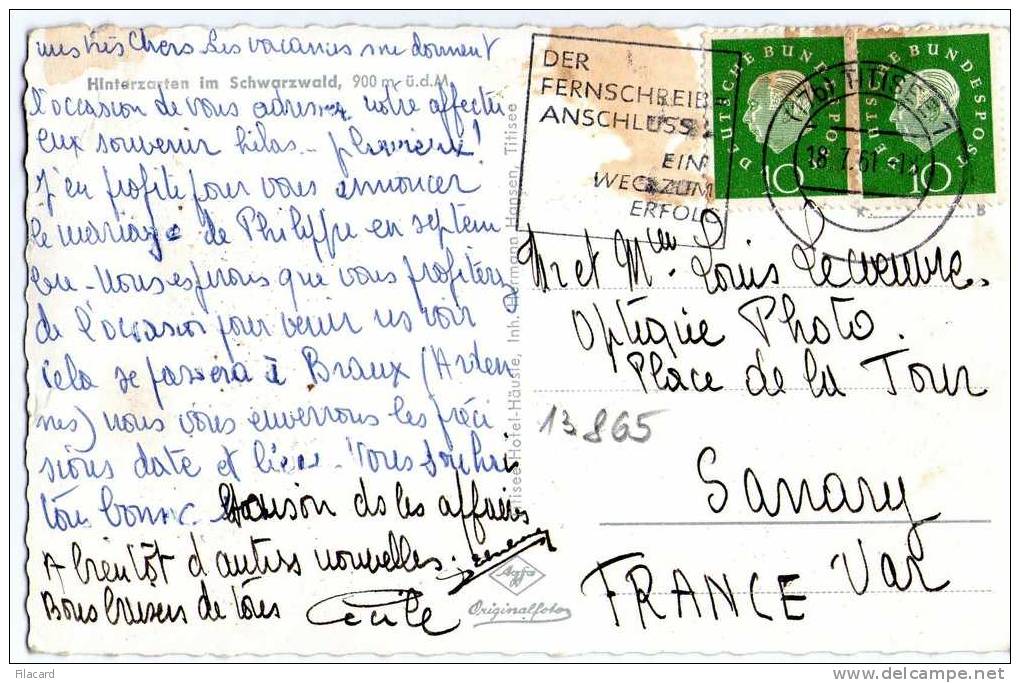 mes très chers Les vacances me donnent
Hinterzarten im Schwarzwald, 900 m ü.d.M.
l'occasion de vous adresser notre affectu
eux souvenir hélas - pluvieux!
J'en profite pour vous annoncer
le mariage de Philippe en septem-
bre - Nous espérons que vous profiterez
de l'occasion pour venir us voir
cela se passera à Braux (Arden
nes) nous vous enverrons les préci
sions date et lieu - Vous souhai
tous bonne saison ds les affaires
A bientôt d'autres nouvelles.
Bons baisers de tous Cécile
Titisee-Hotel-Häusle, Inh. Hermann Hansen, Titisee
Agfa
Originalfoto
DER
FERNSCHREIB
ANSCHLUSS
EIN
WEG ZUM
ERFOLG
DEUTSCHE BUNDESPOST
10
DEUTSCHE BUNDESPOST
10
(17b) TITISEE
18.7.61
Mr et Mme Louis
Optique Photo.
Place de la Tour
13865
Sanary
Var
FRANCE
Filacard
www.delcampe.net